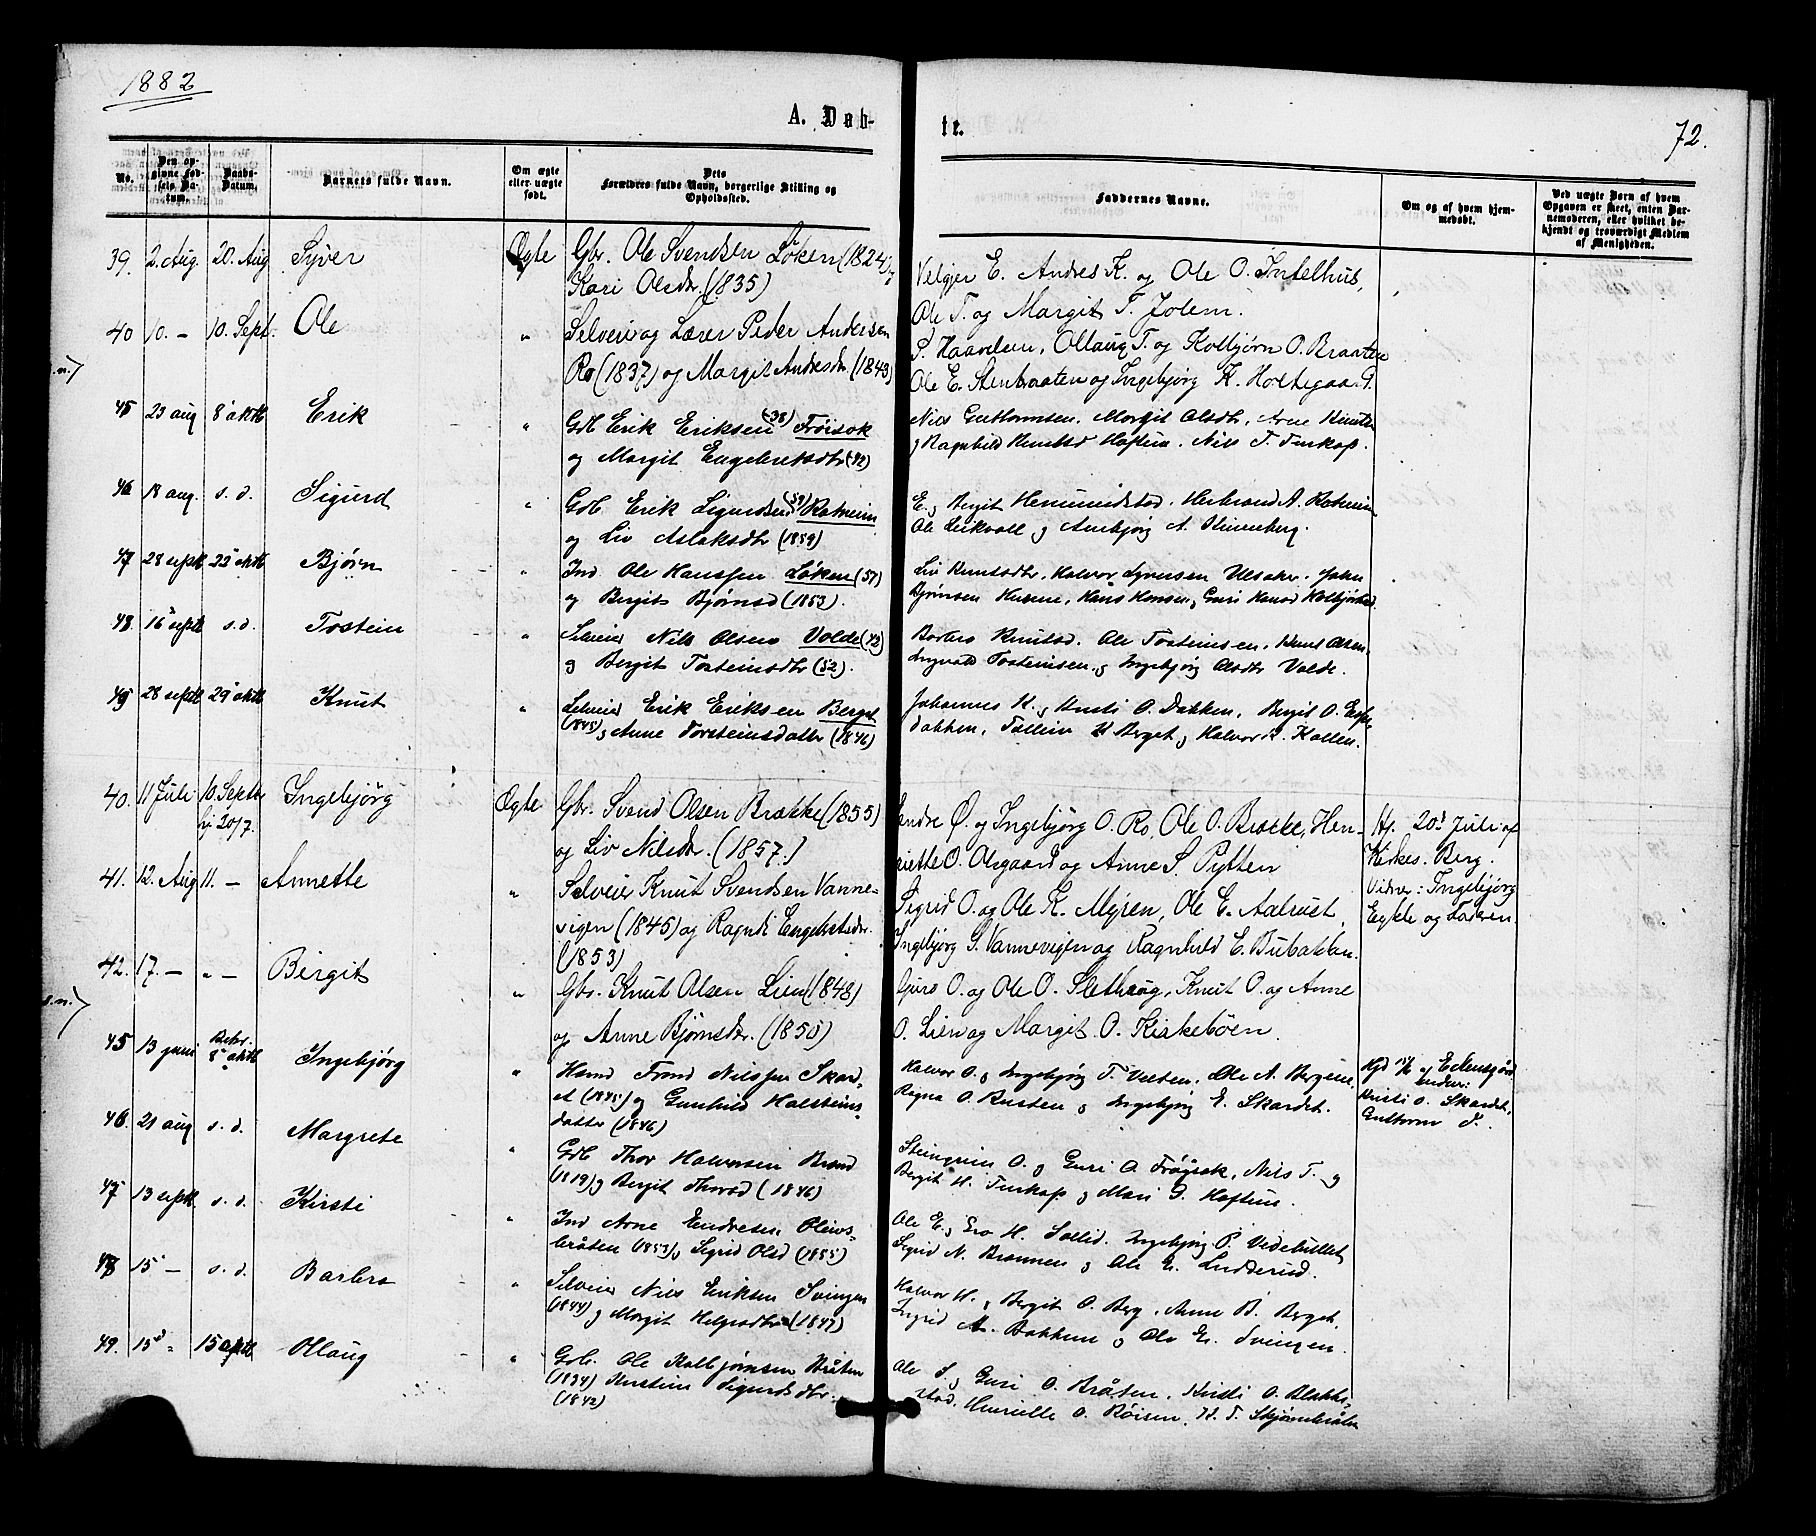 1882
A. Døb-
te.
72.
No.
Den opgivne Fødsels Datum.
Daabs-Datum.
Barnets fulde Navn.
Om ægte eller uægte født.
Dets Forældres fulde Navn, borgerlige Stilling og Opholdssted.
Faddernes Navne.
Om og af hvem hjemmedøbt.
Ved uægte Børn af hvem Opgaven er skeet, enten Barnemoderen, eller hvilket bekjendt og troværdigt Medlem af Menigheden.
39. 2. Aug. 20. Aug Syver Ægte Gbr. Ole Svendsen Løken (1824) og
Kari Olsdr. (1835)
Velgjer E. Andres K. og Ole O.
Ole T. og Margit T. Jotem.
40 10. – 10. Sept. Ole " Selveier og Lærer Peder Andersen
Ro (1837) og Margit Andresdr. (1843)
P. Haavelsen, Ollaug T. og Kolbjørn O. Braaten
Ole E. Stenbraaten og Ingebjørg K. Holtegaard.
45 23 aug 8 oktb Erik " Gdb Erik Eriksen (38) Frøisok
og Margit Engebretsdtr (42)
Niels Guthormsen, Margit Olsdtr, Arne Knutsen
Nils T. Turkop.
46 18 aug. s. d. Sigurd " Gdb Erik Sigurdsen (59) Rotneim
og Liv Aslaksdtr (1859)
E. og Bergit Hemmindstad. Herbrand A. Rotneim
Ole Leikvoll og Annbjørg A.
47 28 septb 22 oktb Bjørn " Ind Ole Hanssen Løken (57)
og Bergit Bjørnsd (1853).
Liv Knutsdtr, Halvor Syversen Ulsaker. John
Bjørnsen Husene, Hans Hansen, Guri
48. 16 septb s. d. Tostein " Selveier Nils Olsen Volde (42)
og Bergit Tosteinsdtr (52).
Barbro Knutsd. Ole Tosteinsen, Knut Olsen,
Ingvald Tosteinsen og Ingebjørg Olsdtr Volde.
49 28 septb 29 oktb Knut " Selveier Erik Eriksen Berget
(1845) og Anne Torsteinsdatter (1846)
Johannes H. og Kristi O. Dokken, Bergit O. Espe-
dokken, Tollein K Berget og Halvor K. Kollen.
40. 11 Juli 10. Septbr Ingebjørg Ægte Gbr. Svend Olsen Brække (1855)
hj 20/7. og Liv Nilsdr. (1857.)
Endre Ø. og Ingebjørg O. Ro, Ole O. Brække, Hen-
riette O. Olsgaard og Anne S. Pytten
Hj. 20d Juli af
Kirkes. Berg.
Vidner: Ingebjørg
Eykle og Faderen.
41. 12. Aug 11. – Annette " Selveier Knut Svendsen Vanne-
vigen (1845) og Ragndi Engebretsdr.
(1853)
Sigrid O. og Ole K. Myren, Ole E. Aalrust,
Ingebjørg S. Vannevigen og Ragnhild E. Bubakken.
42. 17. – " – Birgit " Gbr. Knut Olsen Lien (1848)
og Anne Bjørnsdr. (1850)
Guro O. og Ole O. Slethaug, Knut O. og Anne
O. Lien og Margit O. Kirkebøen
45 13 juni 8 oktb Ingebjørg " Husmd Trond Nilssen Skar-
et (1845) og Gunhild Halsteins-
datter (1846)
Halvor O. og Ingebjørg T. Velten. Ole N. Bergene.
Ragna O. Rusten og Ingebjørg E. Skardet.
Hjd
Kristi O. Skardet,
Guttorm T.
46. 21 aug s. d. Margrete " Gdb Thor Halvorsen Brand
(1819) og Bergit Thorsd (1846)
Steingrim O. og Guri O Frøisok, Nils T. og
Bergit H. Turkop og Mari
47 13 septb. s. d. Kirsti " Ind Arne Endresen Olavs-
bråten (1853) og Sigrid Olsd (1855)
Ole E. og Gro H. Sollid. Ingebjørg P. Vedehullet,
Sigrid N. Brennen og Ole E. Ludderud.
48 15 – s. d. Barbro " Selveier Nils Eriksen Svingen
(1844) og Margit Helgesdtr (1847)
Halvor H. og Bergit O. Berg, Anne B. Berget.
Ingrid A. Bakken og Ole E. Svingen.
49. 15 " 15 oktb Ollaug " Gdb. Ole Kolbjørnsen Bråten
(1834) Kirstine Sigurdsdtr.
(1842)
Ole S. og Guri O. Bråten, Kristi O.
Henrielle O. Røisen, H. T. Skjønnebråten